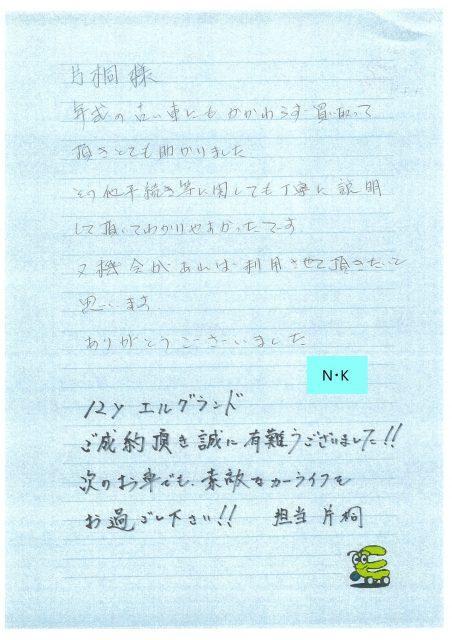 片桐様
年式の古い車にもかかわらず買取って
頂きとても助かりました
その他手続き等に関しても丁寧に説明
して頂いてわかりやすかったです
又機会があれば利用させて頂きたいと
思います
ありがとうございました
N・K
12y エルグランド
ご成約頂き誠に有難うございました!!
次のお車でも、素敵なカーライフを
お過ごし下さい!! 担当 片桐